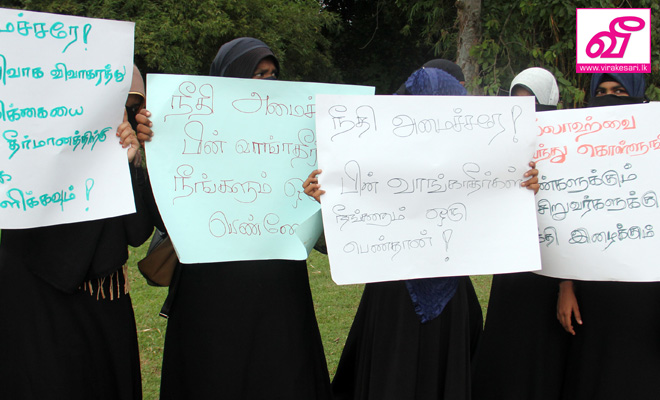 மைச்சரே!
விவாகரத்து
தீர்மானத்திற்கு
ளிக்கவும்!
நீதி அமைச்
பின் வாங்காதீ
நீங்களும் ஒ
பெண்ணே
நீதி அமைச்சரே!
பின் வாங்காதீர்கள்
நீங்களும் ஒரு
பெண்தான்!
ல்லாஹ்வை
ந்து கொள்ளுங்
ண்களுக்கும்
சிறுவர்களுக்கு
தி இழைக்கும்
வீ
www.virakesari.lk